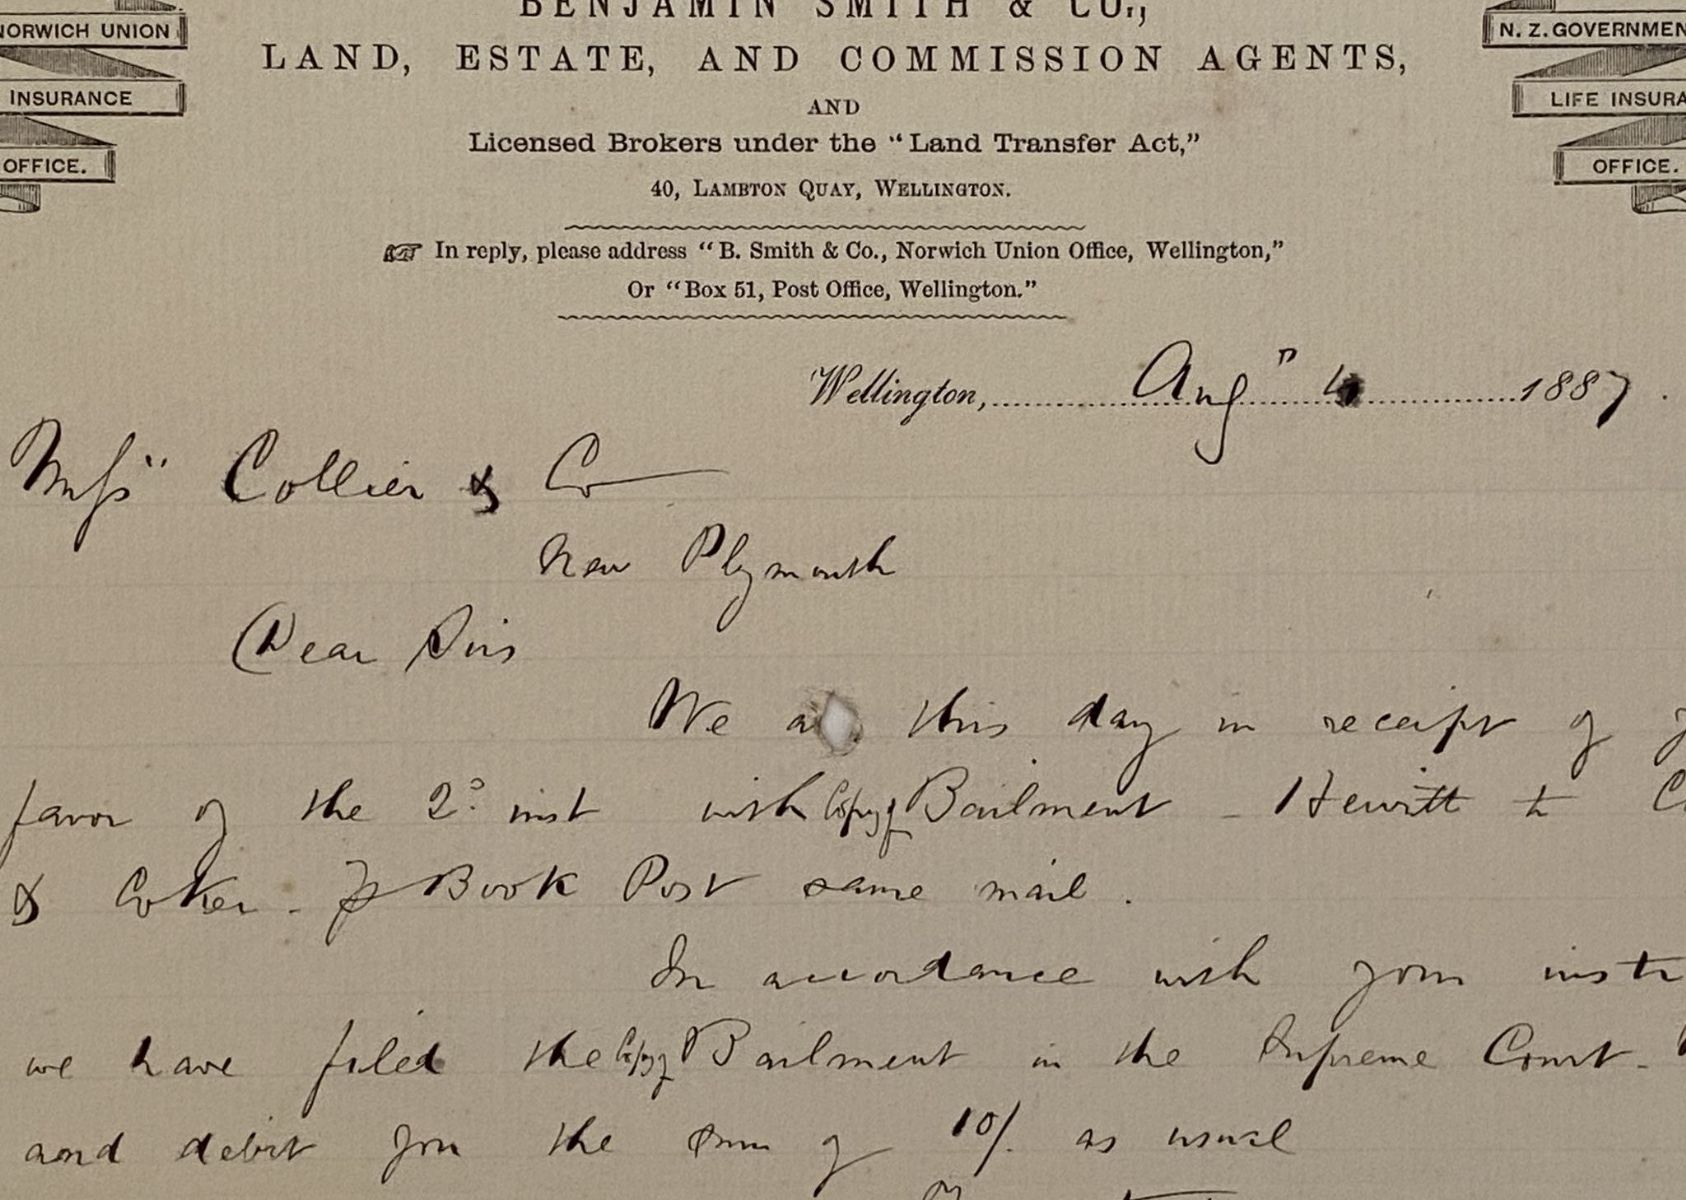 NORWICH UNION
INSURANCE
OFFICE.
BENJAMIN SMITH & CO.,
LAND, ESTATE, AND COMMISSION AGENTS,
AND
Licensed Brokers under the "Land Transfer Act,"
40, LAMBTON QUAY, WELLINGTON.
In reply, please address "B. Smith & Co., Norwich Union Office, Wellington,"
Or "Box 51, Post Office, Wellington."
N. Z. GOVERNMEN
LIFE INSURA
OFFICE.
Wellington, Aug" 4 1887.
Mess" Collier & Co
New Plymouth
Dear Sirs
We a this day in receipt of
favor of the 2d inst with Copy of Bailment - Hewitt to
& Coker - p Book Post same mail.
In accordance with your instr
we have filed the Copy of Bailment in the Supreme Court -
and debit you the sum of 10/. as usual